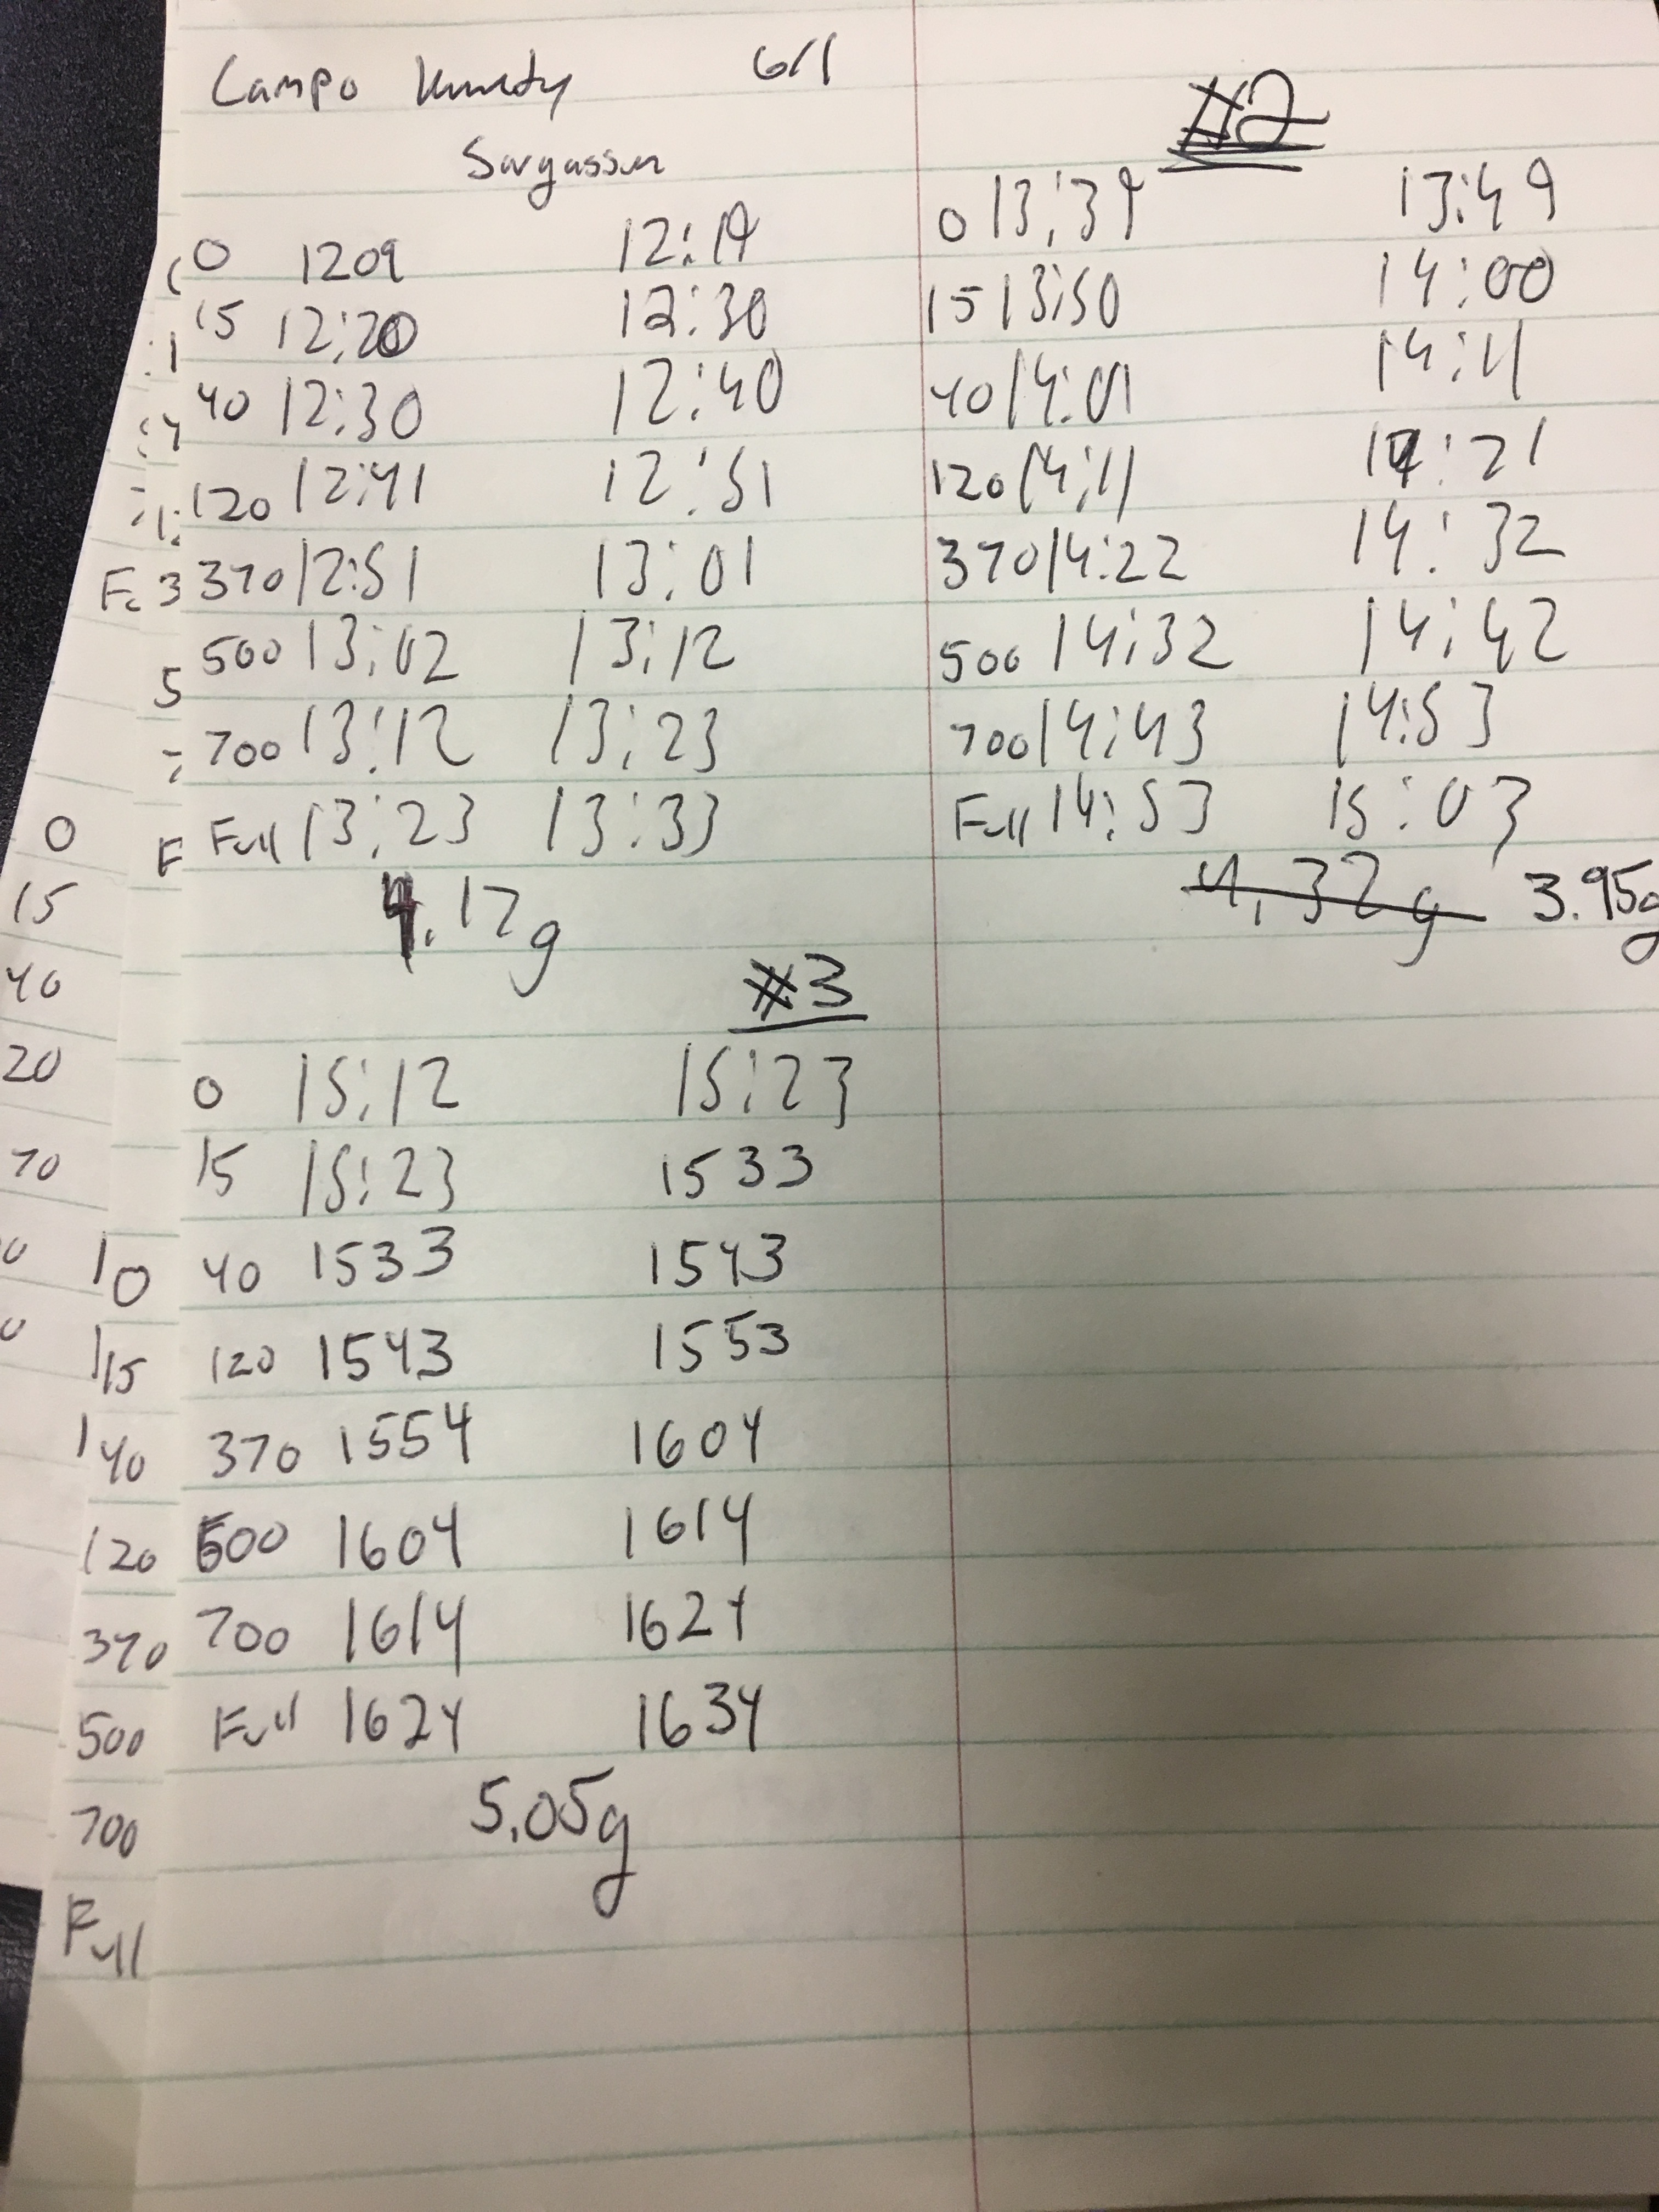 Campo Kennedy 6/1
Sargassum
0 1209 12:19
15 12:20 12:30
40 12:30 12:40
120 12:41 12:51
370 12:51 13:01
500 13:02 13:12
700 13:12 13:23
Full 13:23 13:33
4.12g
#2
0 13:39 13:49
15 13:50 14:00
40 14:01 14:11
120 14:11 14:21
370 14:22 14:32
500 14:32 14:42
700 14:43 14:53
Full 14:53 15:03
4.32g 3.95g
#3
0 15:12 15:23
15 15:23 1533
40 1533 1543
120 1543 1553
370 1554 1604
500 1604 1614
700 1614 1624
Full 1624 1634
5.05g
0
15
40
20
70
10
115
140
120
370
500
700
Full